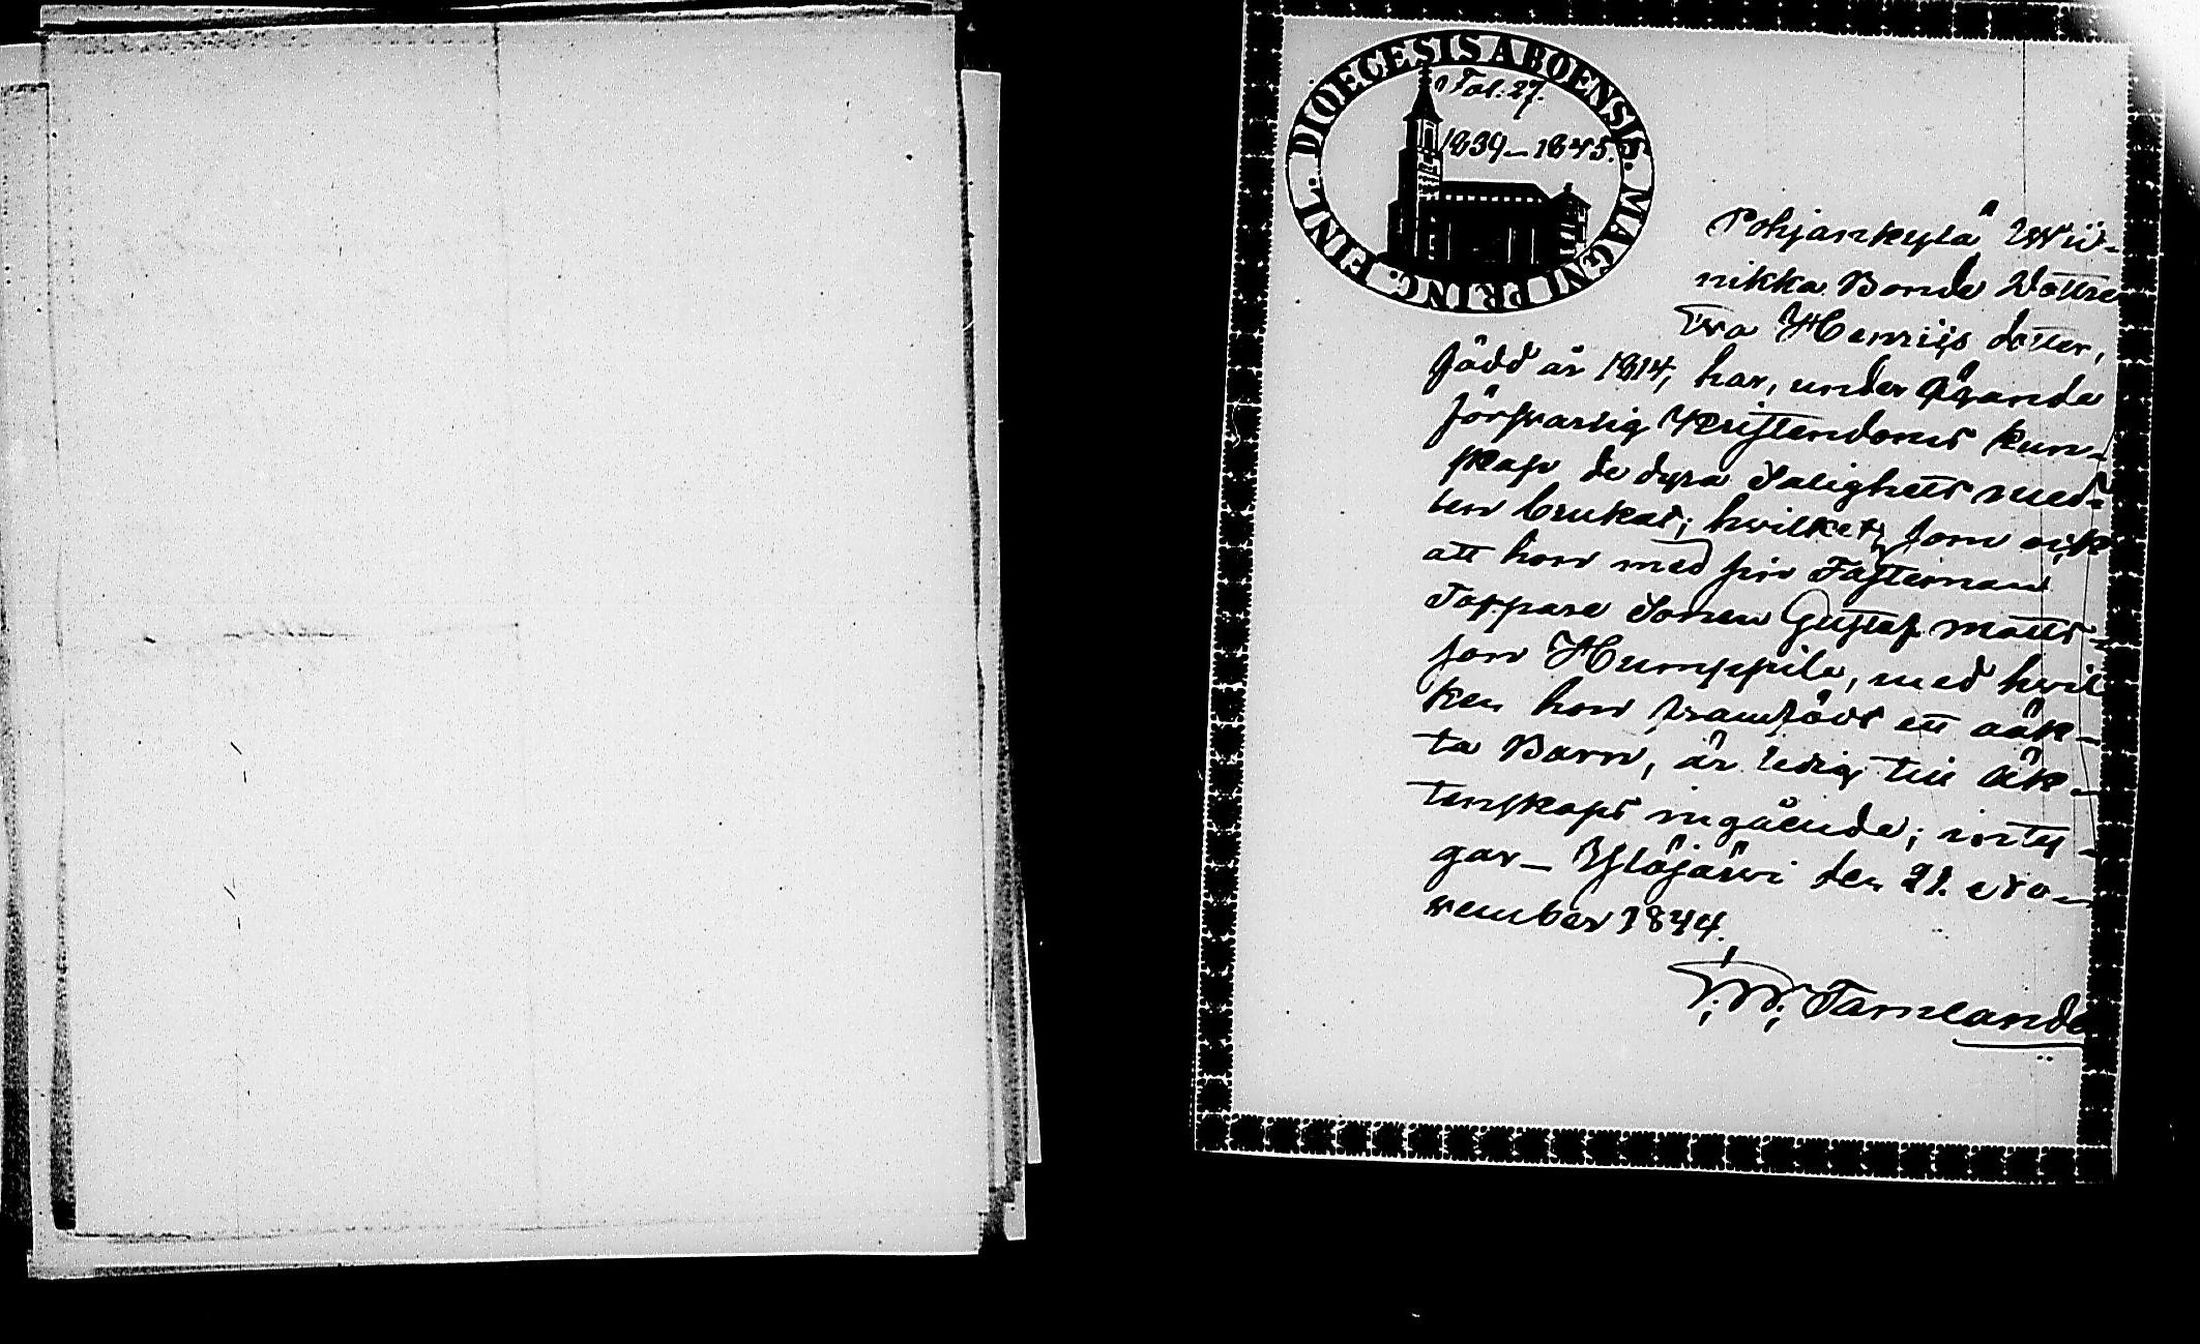 DIOECESIS ABOENSIS. MAGNI PRINC. FINL.
Fol. 27.
1839–1845.
Pohjankylä Wii-
nikka Bonde Dottre
Ewa Henriks dotter,
född år 1814, har, under ägande
förswarlig Kristendoms kun-
skap de dyra Salighets med-
len brukat; hwilket, som ock
att hon med sin Fästeman
Torpare Sonen Gustaf Matts-
son Humppila, med hwil
ken hon framfödt ett oäk-
ta Barn, är ledig till äk-
tenskaps ingående; inty-
gar – Ylöjärwi den 21. No-
vember 1844.